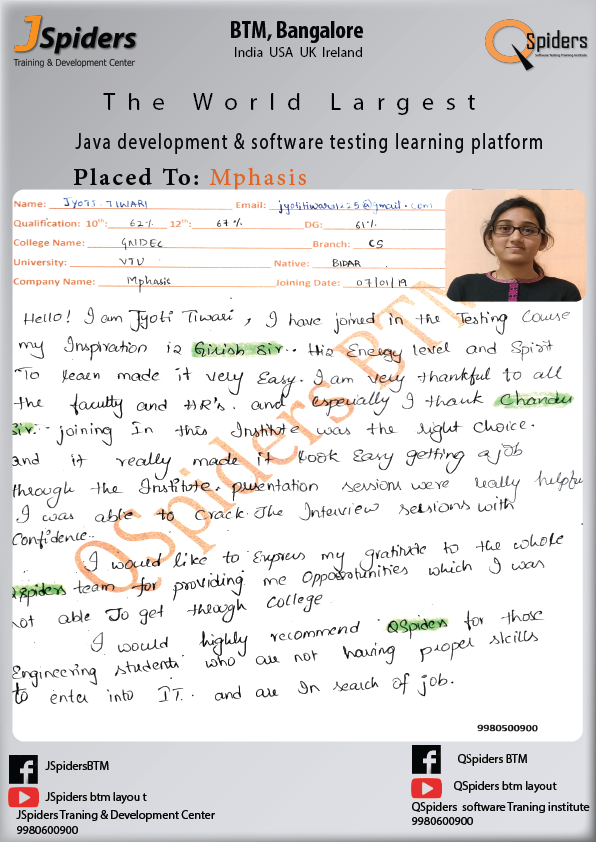 JSpiders
Training & Development Center
BTM, Bangalore
India USA UK Ireland
QSpiders
Software Testing Training Institute
The World Largest
Java development & software testing learning platform
Placed To: Mphasis
Name: JYOTI TIWARI Email: jyotitiwari1225@gmail.com
Qualification: 10th: 62% 12th: 67% DG: 61%
College Name: GNDEC Branch: CS
University: VTU Native: BIDAR
Company Name: Mphasis Joining Date: 07/01/19
Hello! I am Jyoti Tiwari, I have joined in the Testing Course
my Inspiration is Girish Sir.. His Energy level and Spirit
To learn made it very Easy. I am very thankful to all
the faculty and HR's. and especially I thank Chandu
Sir.. joining In this Institute was the right choice.
and it really made it look Easy getting a job
through the Institute. presentation sessions were really helpful
I was able to Crack The Interview sessions with
Confidence..
I would like to Express my gratitude to the whole
QSpiders team for providing me Opportunities which I was
not able To get through College
I would highly recommend QSpiders for those
Engineering students who are not having proper skills
to enter into IT. and are In search of job.
QSpiders BTM
9980500900
JSpidersBTM
JSpiders btm layou t
JSpiders Traning & Development Center
9980600900
QSpiders BTM
QSpiders btm layout
QSpiders software Traning institute
9980600900